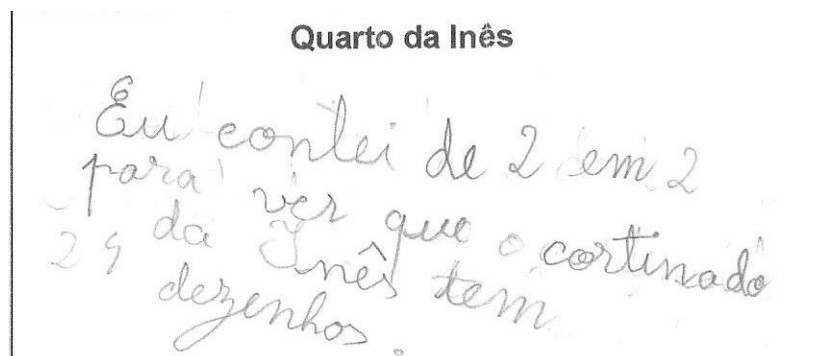 Quarto da Inês
Eu contei de 2 em 2
para ver que o cortinado
da Inês tem
29 dezenhos.